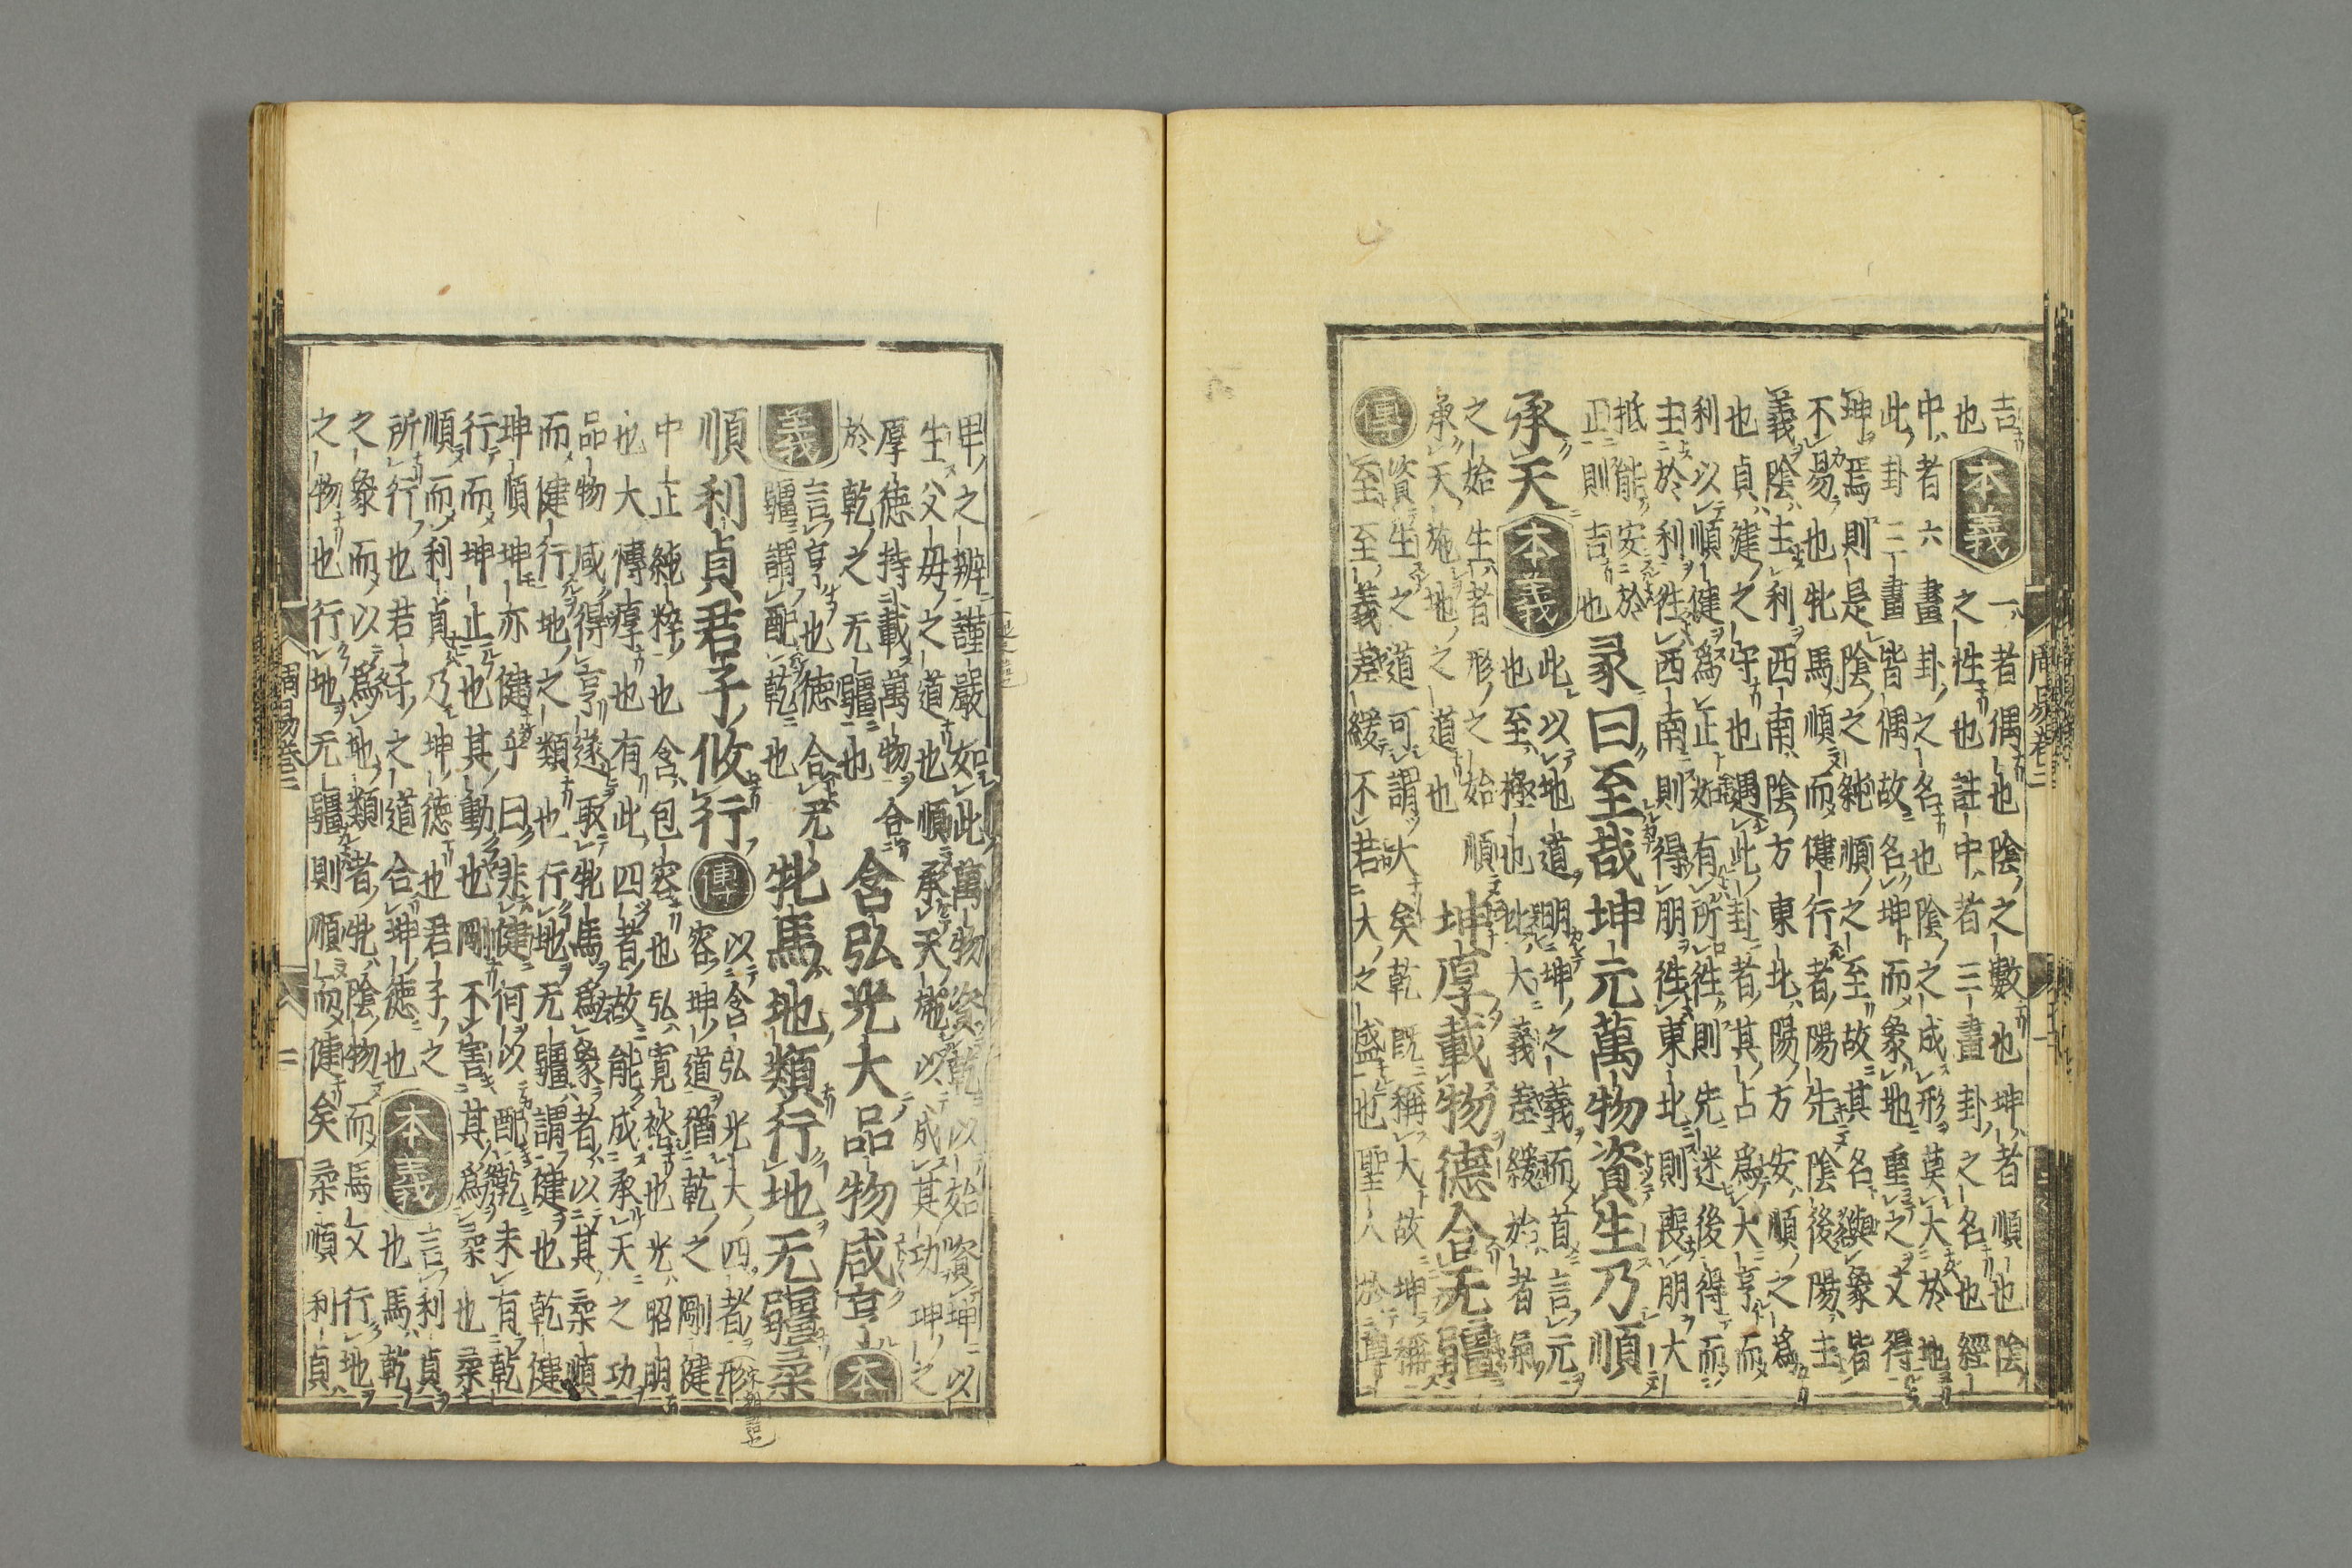 吉
也
本義
一者偶也陰之數也坤者順也陰
之性也註中者三畫卦之名也經
中者六畫卦之名也陰之成形莫大於地
此卦三畫皆偶故名坤而象地重之又得
坤焉則是陰之純順之至故其名與象皆
不易也牝馬順而健行者陽先陰後陽主
義陰主利西南陰方東北陽方安順之爲
也貞健之守也遇此卦者其占爲大亨而
利以順健爲正如有所往則先迷後得而
主於利往西南則得朋往東北則喪朋大
抵能安於
正則吉也
彖曰至哉坤元萬物資生乃順
承天
本義
此以地道明坤之義而首言元
也至極也比大義差緩始者氣
之始生者形之始順
承天施地之道也
坤厚載物德合无疆
傳
資生之道可謂大矣乾既稱大故坤稱
至至義差緩不若大之盛也聖人於尊
周易卷二
卑之辨謹嚴如此萬物資乾以始資坤以
生父母之道也順承天施以成其功坤之
厚德持載萬物合
於乾之无疆也
含弘光大品物咸亨
本義
言亨也德合无
疆謂配乾也
牝馬地類行地无疆柔
順利貞君子攸行
傳
以含弘光大四者形
容坤道猶乾之剛健
中正純粹也含包容也弘寬裕也光昭明
也大博厚也有此四者故能成承天之功
品物咸得亨遂取牝馬爲象者以其柔順
而健行地之類也行地无疆謂健也乾健
坤順坤亦健乎曰非健何以配乾未有乾
行而坤止也其動也剛不害其爲柔也柔
順而利貞乃坤德也君子之
所行也君子之道合坤德也
本義
言利貞
也馬乾
之象而以爲地類者牝陰物而馬又行地
之物也行地无疆則順而健矣柔順利貞
周易卷二
二